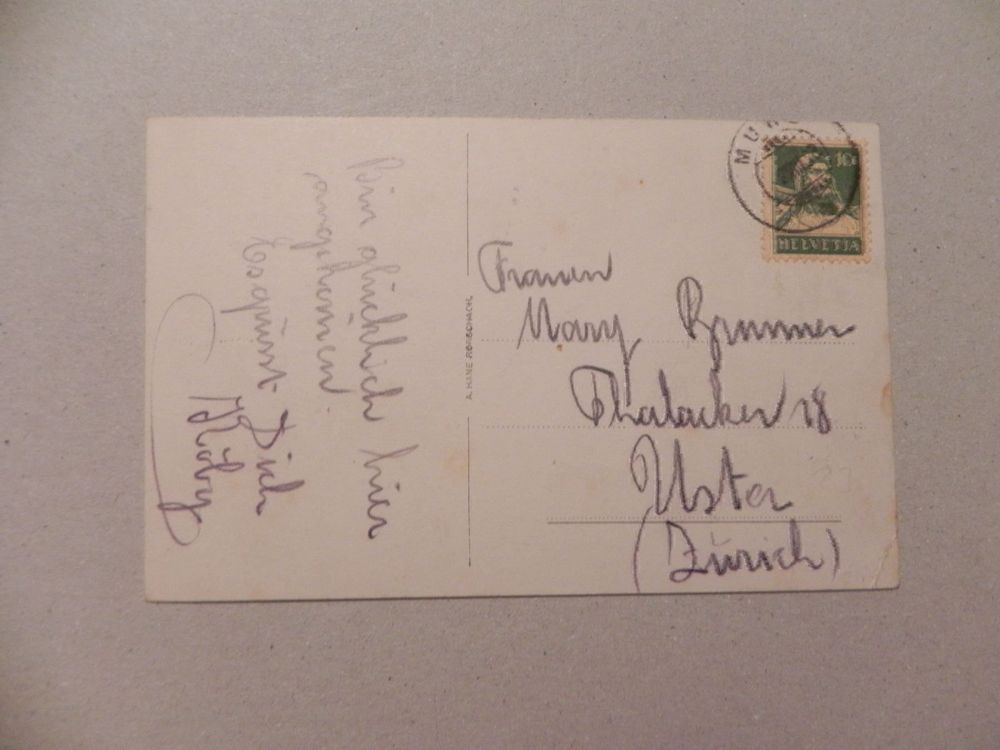 Bin glücklich hier
angekommen.
Es grüsst Dich
Köby
A. HANE RORSCHACH.
10
HELVETIA
Frauen
Mary Brunner
Thalacker 18
Uster
(Zürich)